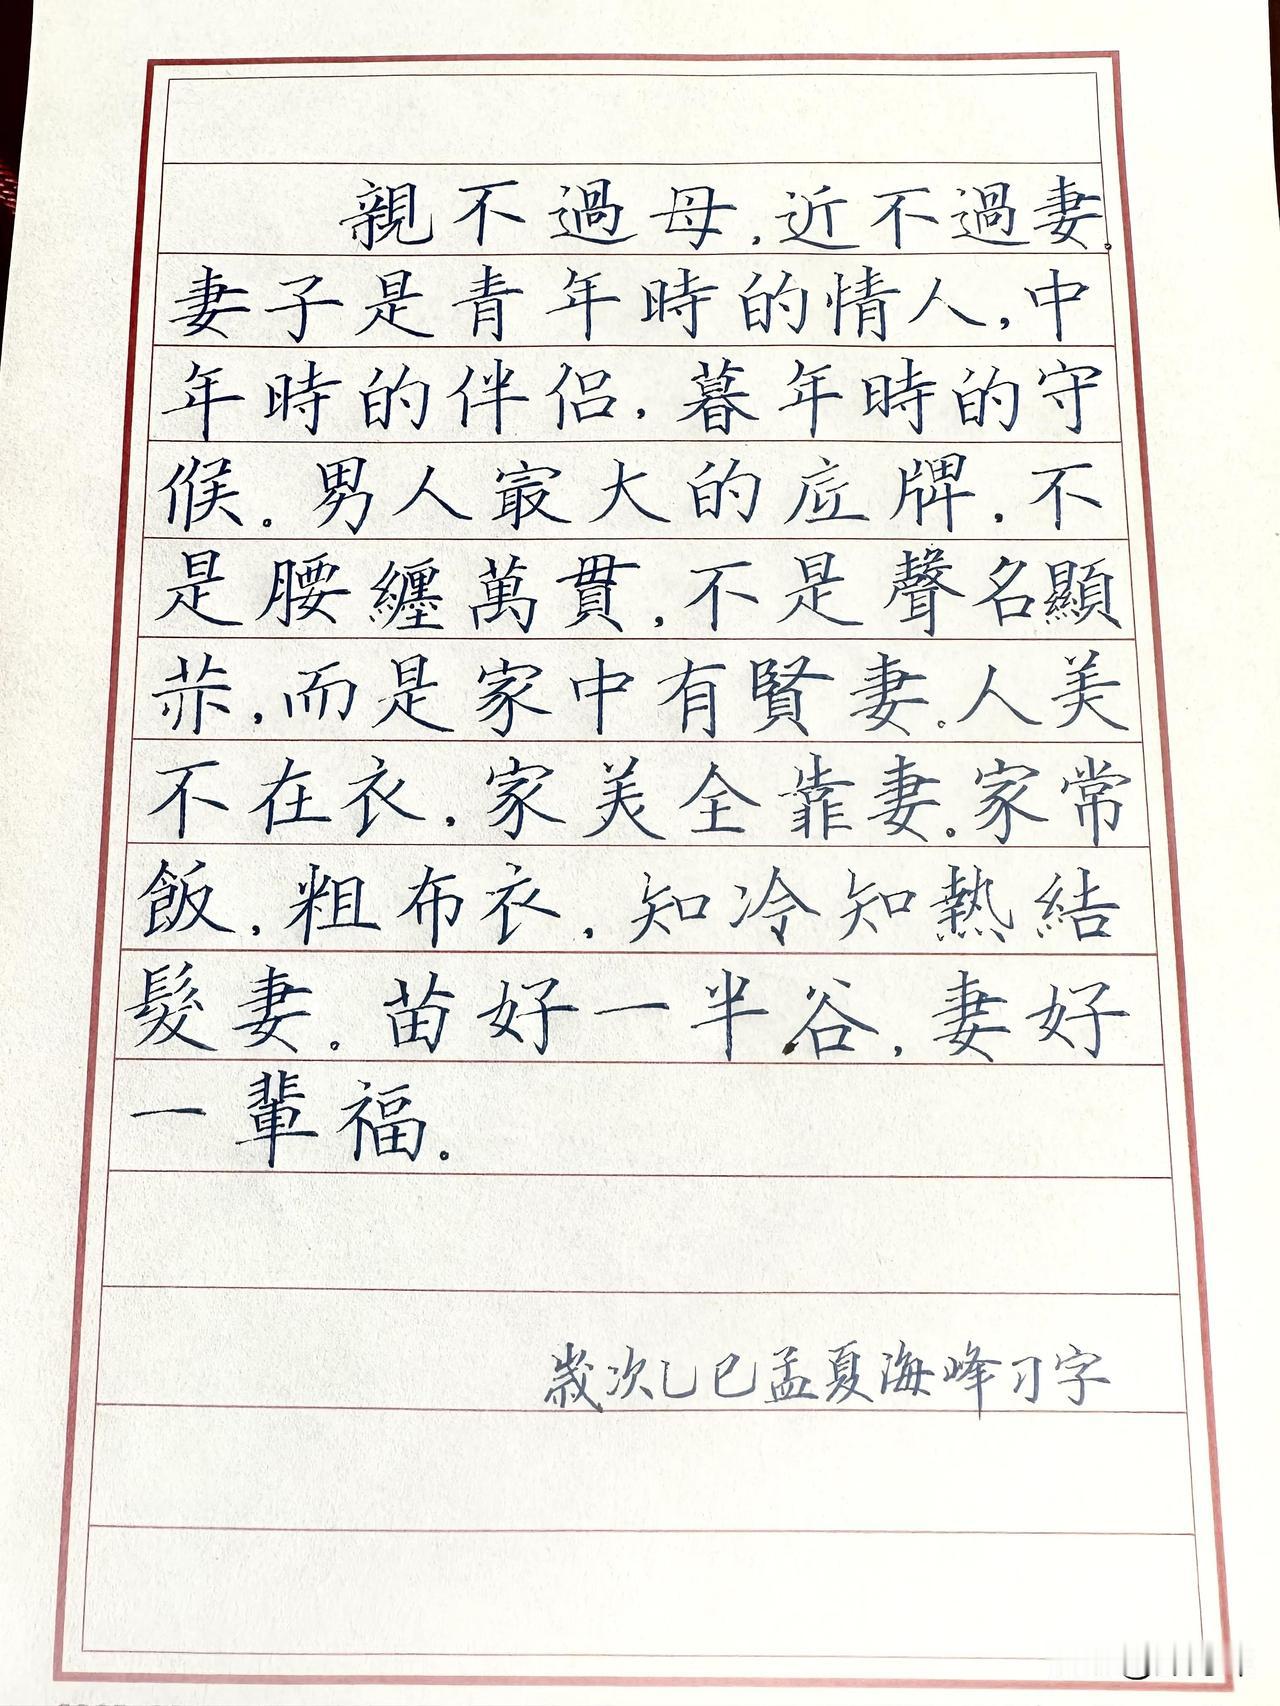 親不過母，近不過妻。
妻子是青年時的情人，中
年時的伴侣，暮年時的守
候。男人最大的應牌，不
是腰纏萬貫，不是聲名顯
赤，而是家中有賢妻。人美
不在衣，家美全靠妻。家常
飯，粗布衣，知冷知熱結
髮妻。苗好一半谷，妻好
一輩福。
歲次乙巳孟夏海峰习字